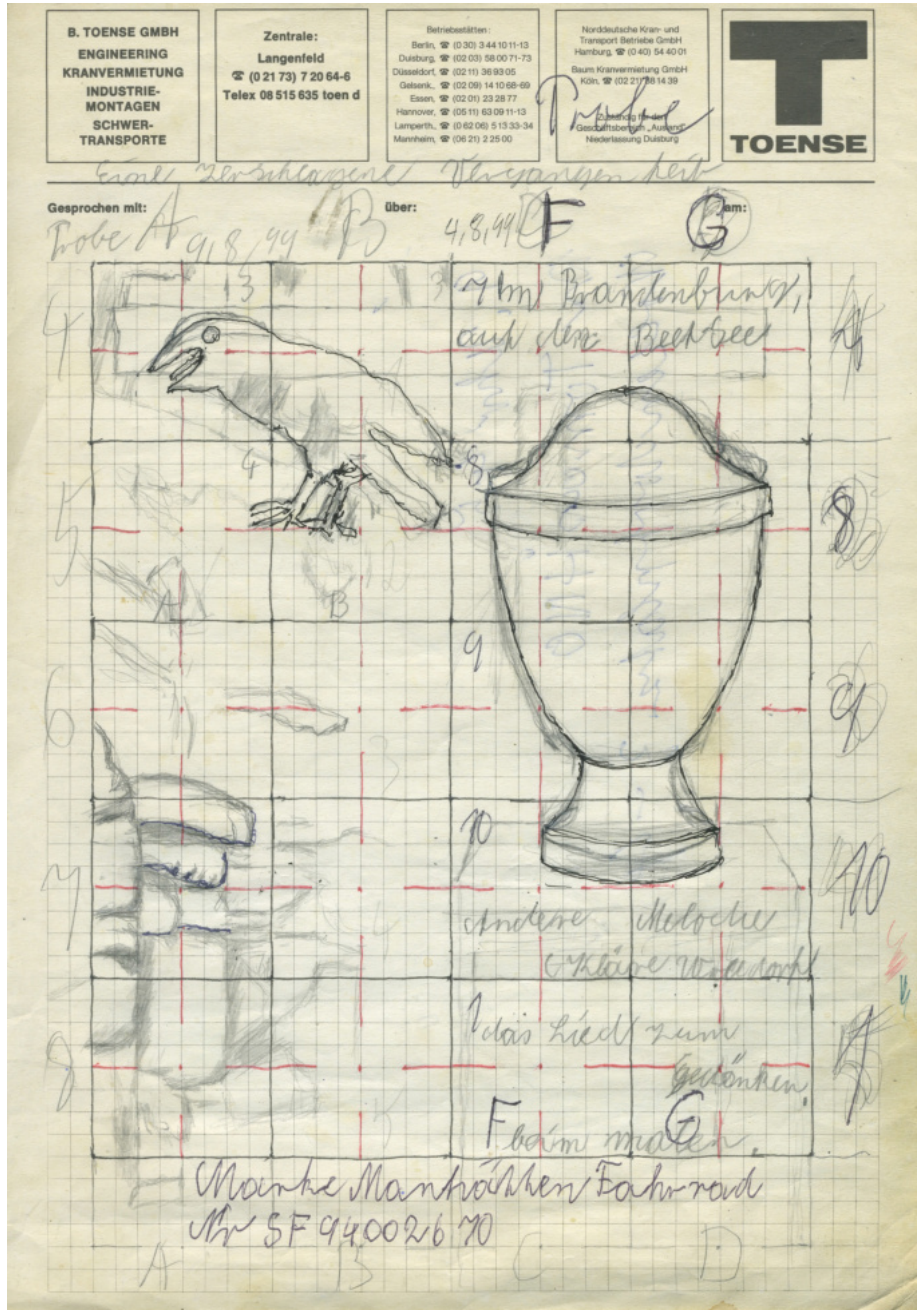 B. TOENSE GMBH
ENGINEERING
KRANVERMIETUNG
INDUSTRIE-
MONTAGEN
SCHWER-
TRANSPORTE
Zentrale:
Langenfeld
☎ (0 21 73) 7 20 64-6
Telex 08 515 635 toen d
Betriebsstätten:
Berlin, ☎ (0 30) 3 44 10 11-13
Duisburg, ☎ (02 03) 58 00 71-73
Düsseldorf, ☎ (02 11) 36 93 05
Gelsenk., ☎ (02 09) 14 10 68-69
Essen, ☎ (02 01) 23 28 77
Hannover, ☎ (05 11) 63 09 11-13
Lamperth., ☎ (0 62 06) 5 13 33-34
Mannheim, ☎ (06 21) 2 25 00
Norddeutsche Kran- und
Transport Betriebe GmbH
Hamburg, ☎ (0 40) 54 40 01
Baum Kranvermietung GmbH
Köln, ☎ (02 21) 38 14 39
Zuständig für den
Geschäftsbereich „Ausland"
Niederlassung Duisburg
Probe
TOENSE
Eine zerschlagene Vergangenheit
Gesprochen mit: über: am:
Probe A 9,8,99 B 4,8,99 F G
13 3
4
7 Im Brandenburg,
auf den
4 8
5 8
A B
9
6 9
10
7 10
Andere Meloche
Kläre
1 das Liedt zum
8
gedänken,
F G
beim malen.
Marke Manhätten Fahrrad
Nr SF 94002670
A B C D